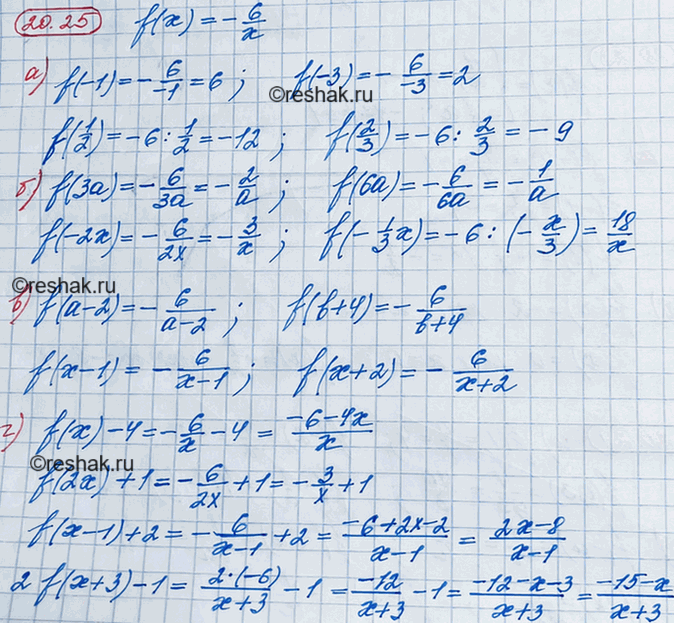 20.25 f(x)=-6/x
а) f(-1)=-6/-1=6; f(-3)=-6/-3=2
©reshak.ru
f(1/2)=-6:1/2=-12; f(2/3)=-6:2/3=-9
б) f(3a)=-6/3a=-2/a; f(6a)=-6/6a=-1/a
f(-2x)=-6/2x=-3/x; f(-1/3x)=-6:(-x/3)=18/x
©reshak.ru
в) f(a-2)=-6/a-2; f(b+4)=-6/b+4
f(x-1)=-6/x-1; f(x+2)=-6/x+2
г) f(x)-4=-6/x-4=-6-4x/x
©reshak.ru
f(2x)+1=-6/2x+1=-3/x+1
f(x-1)+2=-6/x-1+2=-6+2x-2/x-1=2x-8/x-1
2f(x+3)-1=2·(-6)/x+3-1=-12/x+3-1=-12-x-3/x+3=-15-x/x+3